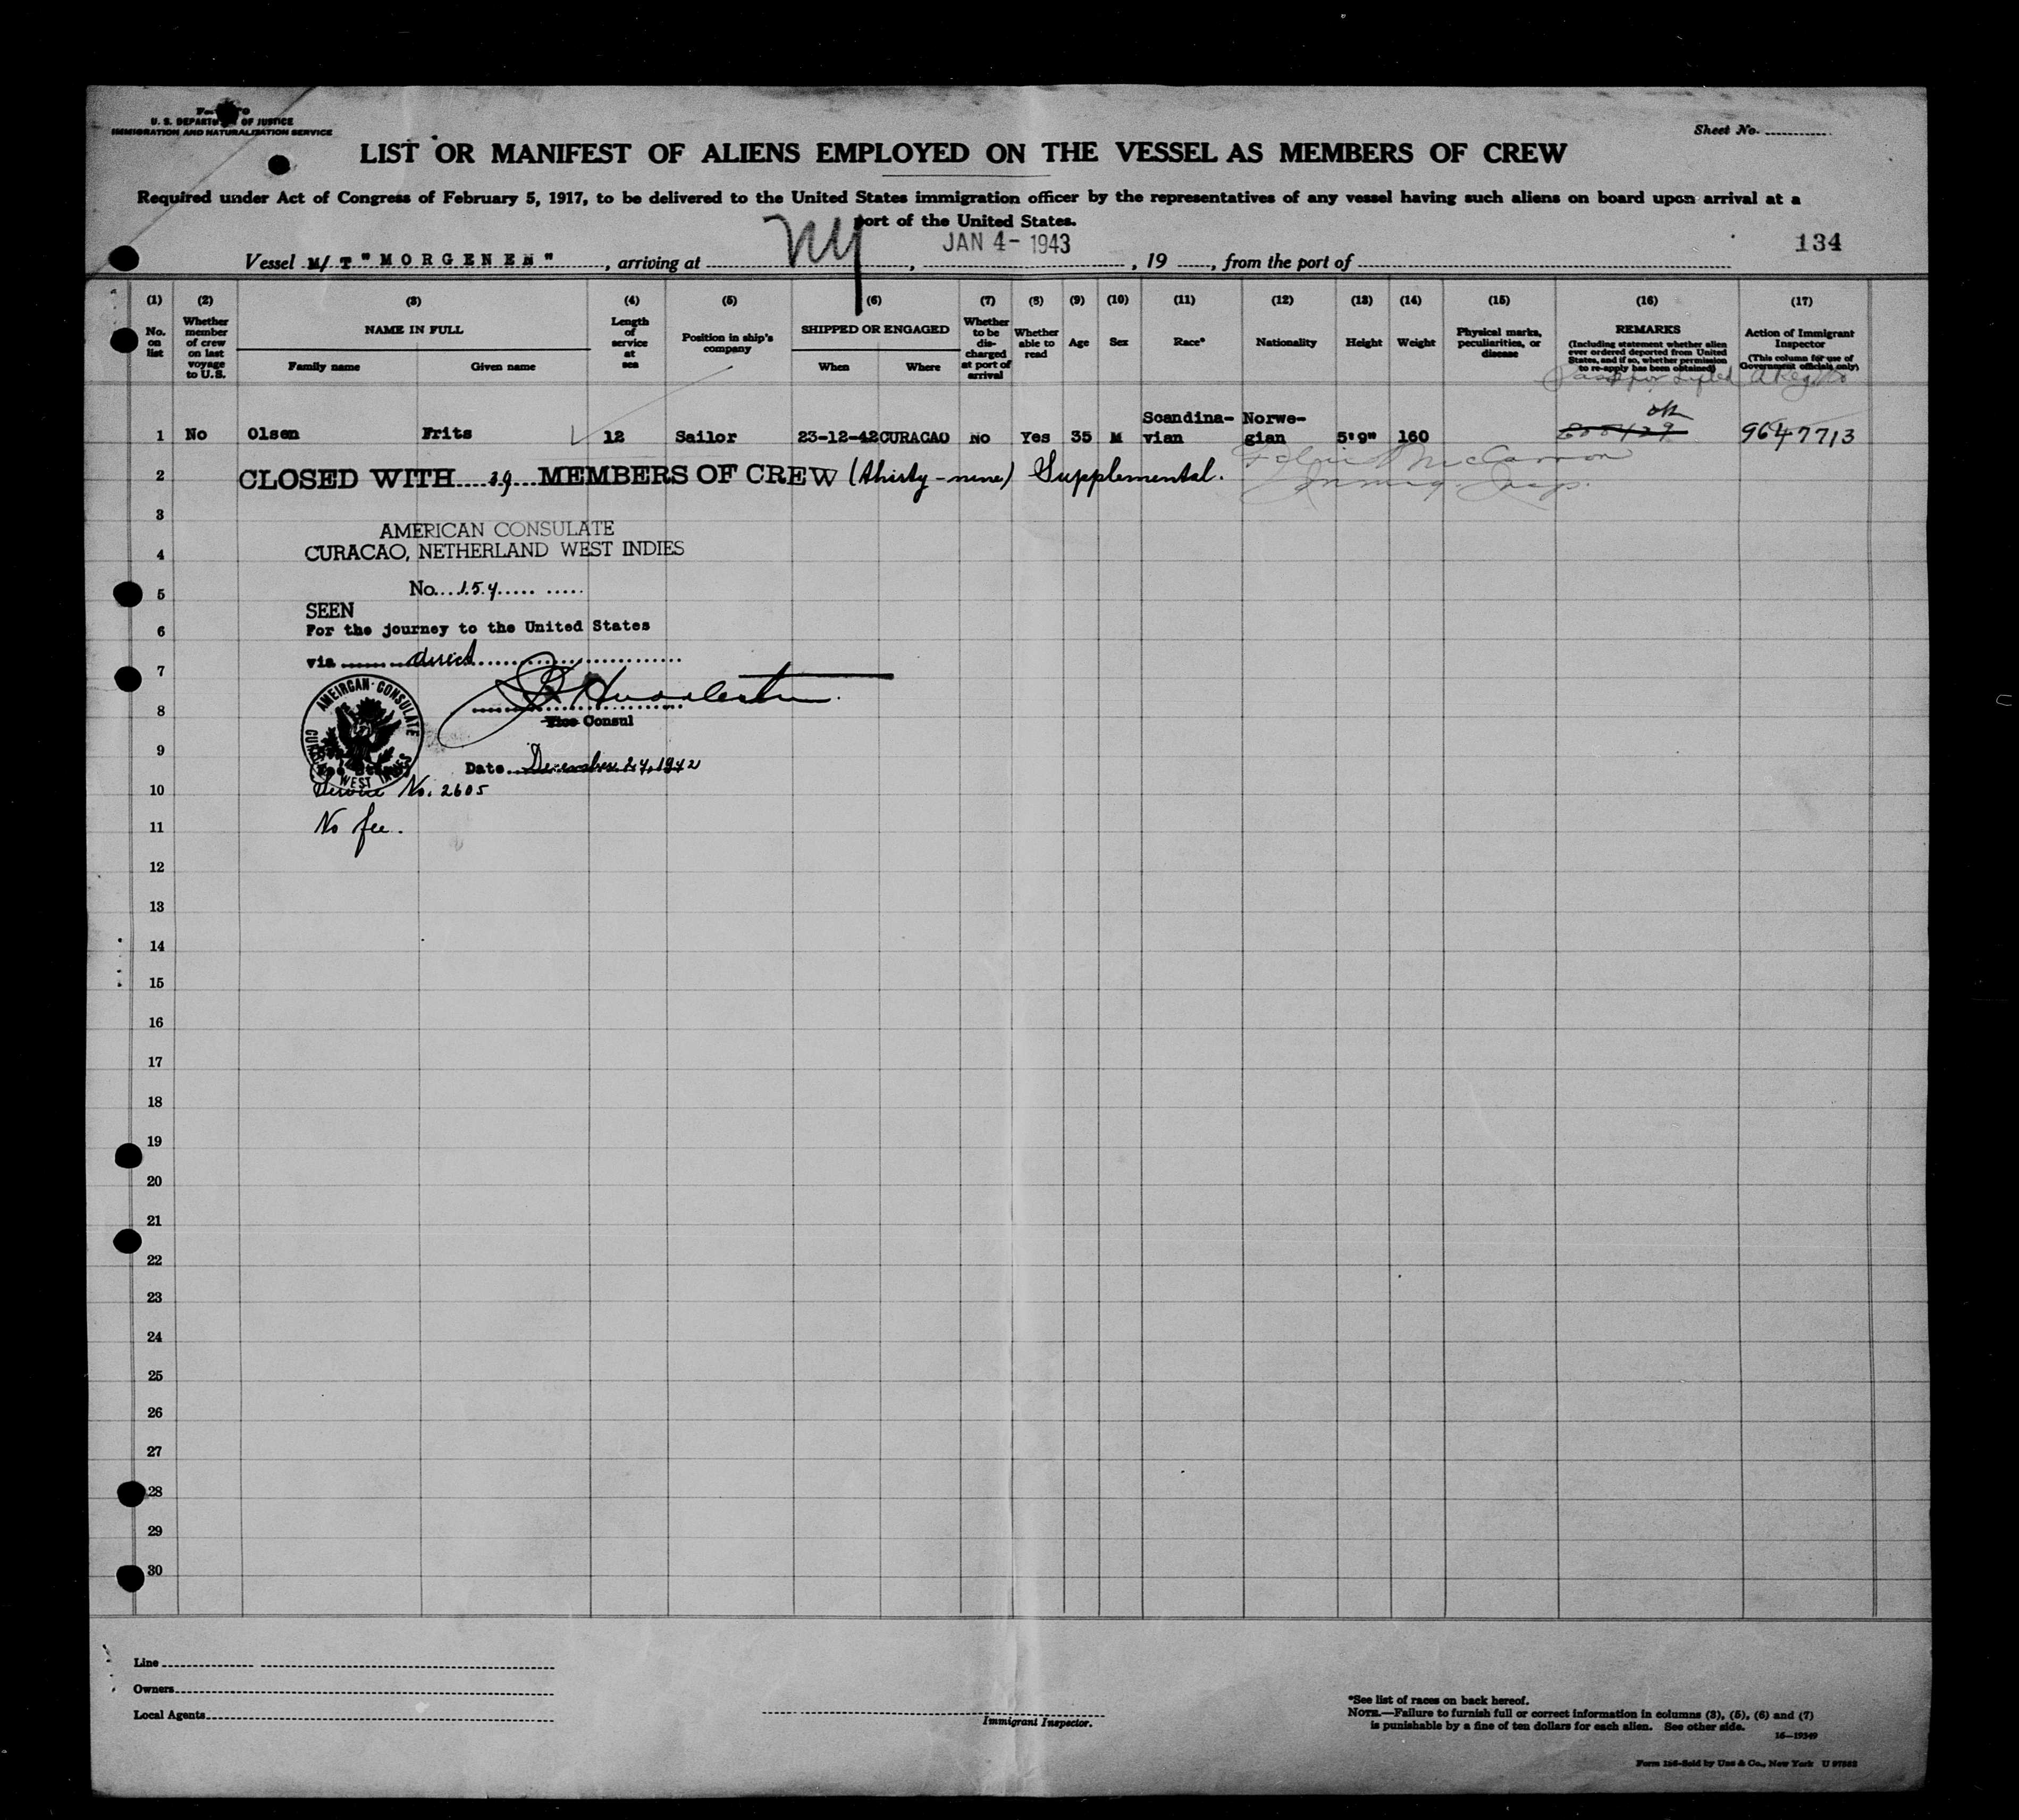 U. S. DEPARTMENT OF JUSTICE
IMMIGRATION AND NATURALIZATION SERVICE
Sheet No.
LIST OR MANIFEST OF ALIENS EMPLOYED ON THE VESSEL AS MEMBERS OF CREW
Required under Act of Congress of February 5, 1917, to be delivered to the United States immigration officer by the representatives of any vessel having such aliens on board upon arrival at a
port of the United States.
134
Vessel M/T "MORGENEN", arriving at NY, JAN 4- 1943, 19, from the port of
(1) (2) (3) (4) (5) (6) (7) (8) (9) (10) (11) (12) (13) (14) (15) (16) (17)
No. on list
Whether member of crew on last voyage to U.S.
NAME IN FULL
Family name
Given name
Length of service at sea
Position in ship's company
SHIPPED OR ENGAGED
When
Where
Whether to be dis-charged at port of arrival
Whether able to read
Age
Sex
Race*
Nationality
Height
Weight
Physical marks, peculiarities, or disease
REMARKS
(Including statement whether alien ever ordered deported from United States, and if so, whether permission to re-apply has been obtained)
Action of Immigrant Inspector
(This column for use of Government officials only)
1 No Olsen Frits 12 Sailor 23-12-42 CURACAO No Yes 35 M Scandina-vian Norwe-gian 5'9" 160 ok 9647713
2 CLOSED WITH 39 MEMBERS OF CREW (thirty-nine) Supplemental.
3
AMERICAN CONSULATE
4
CURACAO, NETHERLAND WEST INDIES
5
No. 154
SEEN
6
For the journey to the United States
via direct
7
AMEIRCAN CONSULATE
WEST INDIES
8
Vice Consul
9
Date December 24, 1942
10
Service No. 2605
11
No fee.
12
13
14
15
16
17
18
19
20
21
22
23
24
25
26
27
28
29
30
Line
Owners
Local Agents
Immigrant Inspector.
*See list of races on back hereof.
NOTE.—Failure to furnish full or correct information in columns (3), (5), (6) and (7)
is punishable by a fine of ten dollars for each alien. See other side.
16—19349